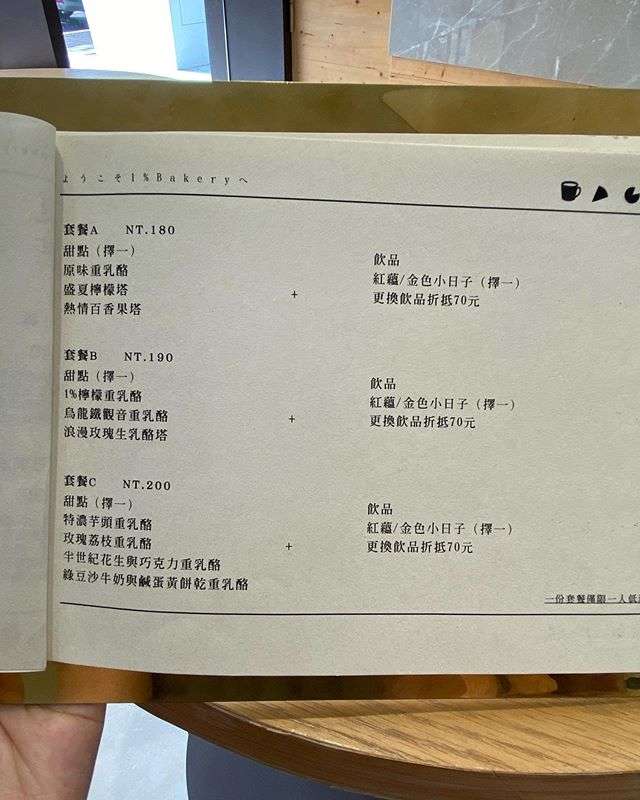 ようこそ1%Bakeryへ
套餐A NT.180
甜點（擇一）
原味重乳酪
盛夏檸檬塔
熱情百香果塔
+
飲品
紅蘊/金色小日子（擇一）
更換飲品折抵70元
套餐B NT.190
甜點（擇一）
1%檸檬重乳酪
烏龍鐵觀音重乳酪
浪漫玫瑰生乳酪塔
+
飲品
紅蘊/金色小日子（擇一）
更換飲品折抵70元
套餐C NT.200
甜點（擇一）
特濃芋頭重乳酪
玫瑰荔枝重乳酪
半世紀花生與巧克力重乳酪
綠豆沙牛奶與鹹蛋黃餅乾重乳酪
+
飲品
紅蘊/金色小日子（擇一）
更換飲品折抵70元
一份套餐僅限一人低